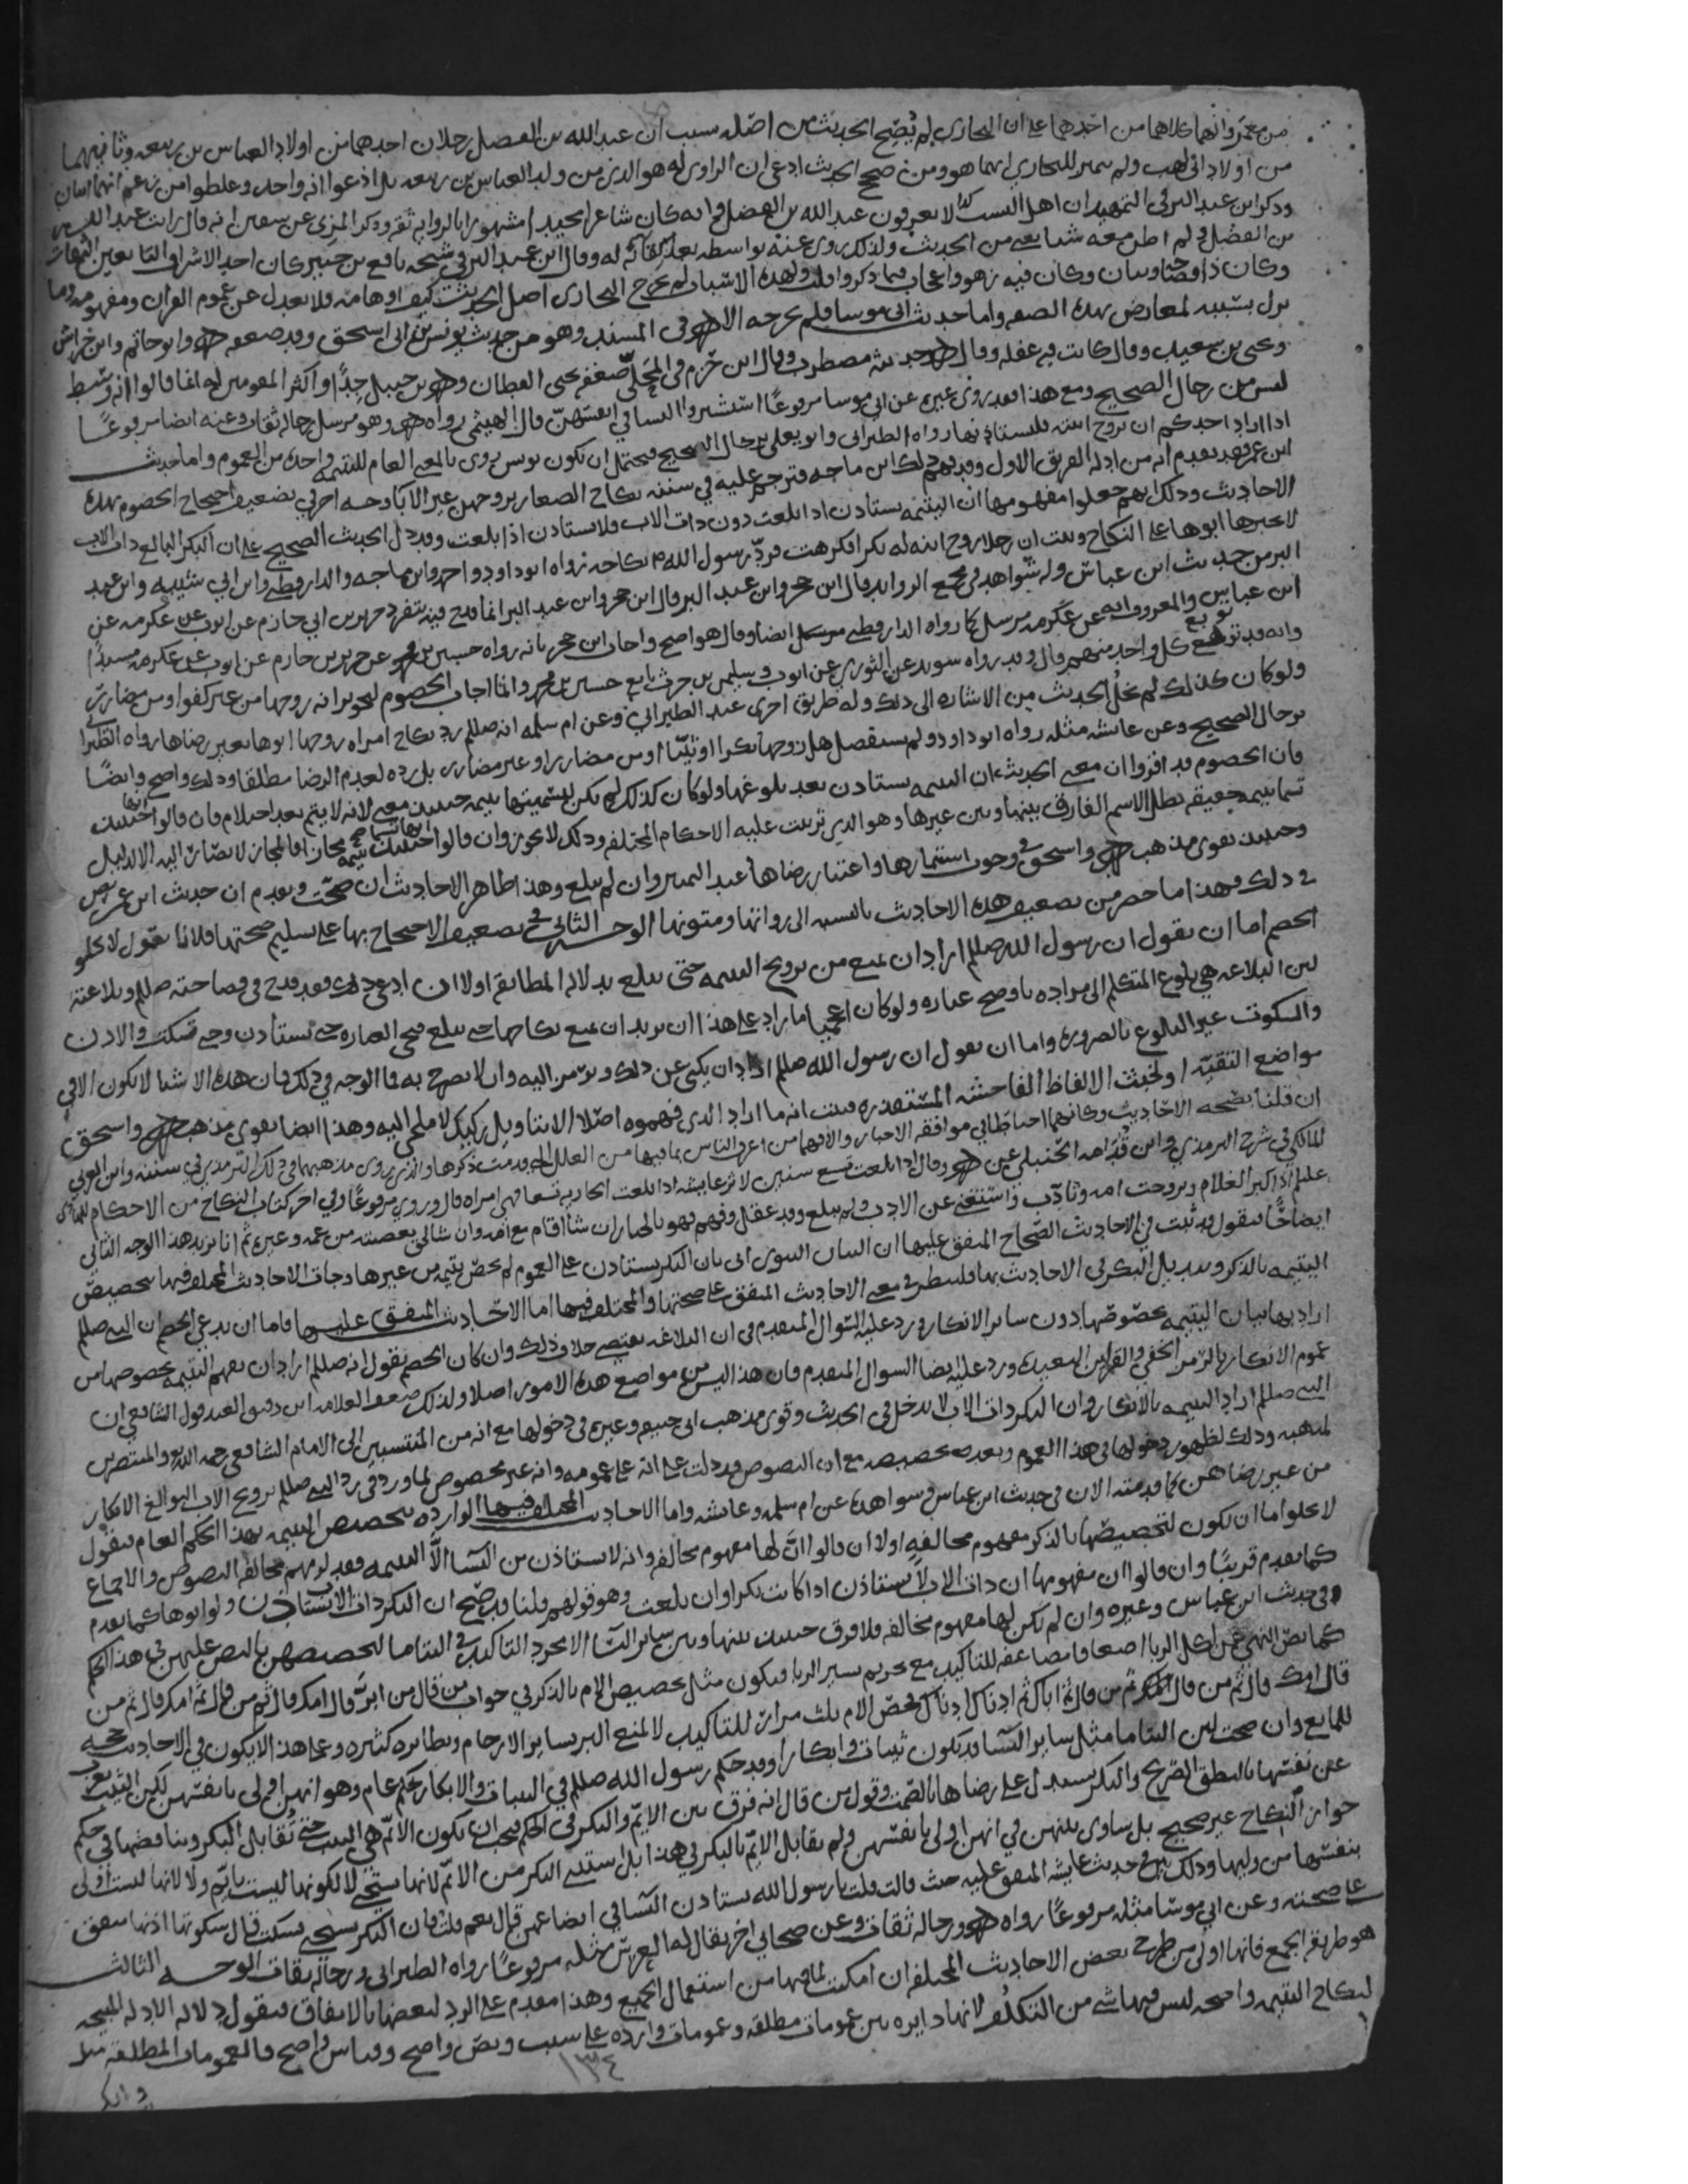 من معمر وانهما كلاهما من احدهما على ان البخاري لم يُصَحِّح الحديث من اصله سبب ان عبد الله بن الفضل رجلان احدهما من اولاد العباس بن ربيعه وثانيهما
من اولاد ابي لهب ولم يتميز للبخاري ايهما هو ومن صحح الحديث ادعى ان الراوي له هو الذي من ولد العباس بن ربيعه بل ادعوا انه واحد وغلطوا من زعم انهما اثنان
وذكر ابن عبد البر في التمهيد ان اهل النسب لا يعرفون عبد الله بن الفضل وانه كان شاعرا مجيدا مشهورا بالروايه ثقه وذكر المزي عن سفين انه قال رايت عبد الله
بن الفضل ولم اطرح معه شيا يعني من الحديث ولذلك روى عنه بواسطه بعد لقائه له وقال ابن عبد البر في شيخه نافع بن جبير كان احد الاشراف التابعين الثقات
وكان ذا فصاحه ولسان وكان فيه زهو واعجاب فيما ذكروا قلت ولهذه الاشيا لم يخرج البخاري اصل الحديث فلا يعدل عن عموم القران ومفهومه وما
نزل بسببه لمعارض بهذه الصفه واما حديث ابي موسا فلم يخرجه الا في المسند وهو من حديث يونس بن ابي اسحق وقد ضعفه وابو حاتم وابن خراش
ويحيى بن سعيد وقال كانت فيه غفله وقال حديثه مضطرب وقال ابن حزم في المحلى ضعفه يحيى القطان بن حنبل جدًا واكثر المقومين له انما قالوا انه وسط
ليس من رجال الصحيح ومع هذا فقد روى غيره عن ابي موسا مرفوعًا استشيروا النسا في انفسهن قال الهيثمي رواه وهو مرسل رجاله ثقات وعنه ايضا مرفوعًا
اذا اراد احدكم ان يزوج ابنته فليستاذنها رواه الطبراني وابو يعلى برجال الصحيح فيحتمل ان يكون يونس روى بالمعنى العام لليتيمه واحده من العموم واما حديث
ابن عمر فقد تقدم انه من ادله الفريق الاول وقد فهم ذلك ابن ماجه فترجم عليه في سننه نكاح الصغار يزوجهن غير الابا وجه اخر في تضعيف احتجاج الخصوم بهذه
الاحاديث وذلك انهم جعلوا مفهومها ان اليتيمه تستاذن اذا بلغت دون ذات الاب فلا تستاذن اذا بلغت وقد دل الحديث الصحيح على ان البكر البالغ ذات الاب
لا يجبرها ابوها على النكاح وثبت ان رجلا زوج ابنه له بكرا فكرهت فردّ رسول الله نكاحه رواه ابو داود وابن ماجه والدارقطني وابن ابي شيبه وابن عبد
البر من حديث ابن عباس وله شواهد في مجمع الزوايد قال ابن حجر وابن عبد البر انما قدح فيه بتفرد جرير بن حازم عن ايوب عن عكرمه عن
ابن عباس والمعروف انه عن عكرمه مرسل كما رواه الدارقطني ايضا وقال هو اصح واجاب ابن حجر بانه رواه حسين بن محمد عن جرير بن حازم عن ايوب عن عكرمه مسندًا
وانه قد توبع كل واحد منهم وقال وقد رواه سويد عن الثوري عن ايوب وسليمن بن حرب تابع حسين بن محمد وانما اجاب الخصوم بتجويز انه زوجها من غير كفو او من يضار بها
ولو كان كذلك لم تخلُ الحديث من الاشاره الى ذلك وله طريق اخرى عند الطبراني وعن ام سلمه انه صللم رد نكاح امراه زوجها ابوها بغير رضاها رواه الطبراني
برجال الصحيح وعن عايشه مثله رواه ابو داود ولم يستفصل هل زوجها بكرا او ثيبًا او من مضارر او غير مضارر بل رده لعدم الرضا مطلقا وذلك واضح وايضًا
فان الخصوم قد اقروا ان معنى الحديث ان اليتيمه تستاذن بعد بلوغها ولو كان كذلك لم يكن لتسميتها يتيمه حينئذ معنى لانه لا يتم بعد احتلام فان قالوا انها
تسما يتيمه حقيقه بطل الاسم الفارق بينها وبين غيرها وهو الذي ترتبت عليه الاحكام المختلفه وذلك لا يجوز وان قالوا انها تسما حينئذ يتيمه مجازا فالمجاز لا يصار اليه الا لدليل
وحينئذ يقوى مذهب واسحق في وجوب استيمارها واعتبار رضاها عند التمييز وان لم تبلغ وهذا ظاهر الاحاديث ان صحت وتقدم ان حديث ابن عمر نص
في ذلك فهذا ما حضر من تضعيف هذه الاحاديث بالنسبه الى رواتها ومتونها الوجه الثاني في تضعيف الاحتجاج بها على تسليم صحتها فلانا نقول لا يخلو
الخصم اما ان يقول ان رسول الله صللم اراد ان يمنع من تزويج اليتيمه حتى تبلغ بدلاله المطابقه اولا ان ادعى ذلك فقد قدح في فصاحته صللم وبلاغته
لان البلاغه هي بلوغ المتكلم الى مراده باوضح عباره ولو كان اعجميا ما زاد على هذا ان يريد ان يمنع نكاحها حتى تبلغ فيجي العباره حتى تستاذن وحتى تسكت والاذن
والسكوت غير البلوغ بالضروره واما ان يقول ان رسول الله صللم اراد ان يكني عن ذلك ويرمز اليه وان لا يصرح به فما الوجه في ذلك فان هذه الاشيا لا تكون الا في
مواضع التقيّه او تخبث الالفاظ الفاحشه المستقذره فثبت انه ما اراد الذي فهموه اصلا الا بتاويل ركيك لا ملجى اليه وهذا ايضا يقوي مذهب واسحق
ان قلنا بصحه الاحاديث وكانهما احتاطا في موافقه الاخبار والا فهما من اعرف الناس بما فيها من العلل التي قدمت ذكرها والذي روى مذهبهما في ذلك الترمذي في سننه وابن العربي
المالكي في شرح الترمذي وابن قُدامه الحنبلي عن وقال اذا بلغت تسع سنين لاثر عايشه اذا بلغت الجاريه تسعا فهي امراه قال وروي مرفوعًا وفي اخر كتاب النكاح من الاحكام للهادي
عليلم اذا كبر الغلام وتزوجت امه وتادّب واستغنى عن الادب ولم يبلغ وقد عقل وفهم فهو بالخيار ان شا اقام مع امه وان شا الى بعض عصبته من عمه وغيره ثم انا نزيد هذا الوجه الثاني
ايضاحًا فنقول قد ثبت في الاحاديث الصّحاح المتفق عليها ان البيان النبوي اتى بان البكر تستاذن على العموم لم يخصّ يتيمه من غيرها وجات الاحاديث المختلف فيها بتخصيصّ
اليتيمه بالذكر وتبديل البكر في الاحاديث بها فلينظر في معنى الاحاديث المتفق على صحتها والمختلف فيها اما الاحاديث المتفق عليها فاما ان يدعي الخصم ان النبي صللم
اراد بها بيان اليتيمه بخصوصّها دون ساير الابكار ورد عليه السّوال المتقدم في ان البلاغه تقتضي خلاف ذلك وان كان الخصم يقول انه صللم اراد ان يفهم اليتيمه بخصوصها من
عموم الابكار بالرمز الخفي والقراين البعيده ورد عليه ايضا السوال المتقدم فان هذا ليس من مواضع هذه الامور اصلا ولذلك ضعف العلامه ابن دقيق العيد قول الشافعي ان
النبي صللم اراد اليتيمه بالابكار وان البكر ذات الاب لا تدخل في الحديث وقوى مذهب ابي حنيفه وغيره في دخولها مع انه من المنتسبين الى الامام الشافعي رحمه الله والمنتصرين
لمذهبه وذلك لظهور دخولها في هذا العموم وبعد تخصيصه مع ان النصوص قد دلت على انه على عمومه وانه غير مخصوص لما ورد في رد النبي صللم تزويج الاب البوالغ الابكار
من غير رضاهن كما قدمته الان في حديث ابن عباس وشواهده عن ام سلمه وعايشه واما الاحاديث المختلف فيها الوارده بتخصيص اليتيمه بهذا الحكم العام فنقول
لا يخلوا اما ان يكون لتخصيصّها بالذكر مفهوم مخالفه اولا ان قالوا انَّ لها مفهوم مخالفه وانه لا يستاذن من النسا الاَّ اليتيمه فقد لزمهم مخالفه النصوص والاجماع
كما تقدم قريبًا وان قالوا ان مفهومها ان ذات الاب لا تستاذن اذا كانت بكرا وان بلغت وهو قولهم قلنا قد صّح ان البكر ذات الاب تستاذن ولو ابوها كما تقدم
في حديث ابن عباس وغيره وان لم يكن لها مفهوم مخالفه فلا فرق حينئذ بينها وبين ساير النسا الا مجرد التاكيد في اليتاما لتخصيصهن بالنص عليهن في هذا الحكم
كما نصّ النهي عن اكل الربا اضعافا مضاعفه للتاكيد مع تحريم يسير الربا فيكون مثل تخصيص الام بالذكر في جواب من قال من ابرُّ قال امك قال ثم من قال ثم امك قال ثم من
قال امك قال ثم من قال امك ثم من قال ثم اباك ثم ادناك ادناك فخصّ الام بثلث مرات للتاكيد لا لمنع البر بساير الارحام ونظايره كثيره وعلى هذا لا يكون في الاحاديث حجه
للمانع وان صحت لان اليتاما مثل ساير النسا قد يكون ثيبات وابكارا وقد حكم رسول الله صللم في الثيبات والابكار بحكم عام وهو انهن اولى بانفسهن لكن الثيب تعرب
عن نفسها بالنطق الصريح والبكر يستدل على رضاها بالصّمت وقول من قال انه فرق بين الايّم والبكر في الحكم فيجب ان يكون الايّم هي الثيب حتى تُقابل البكر ويناقضها في حكم
جواز النكاح غير صحيح بل ساوى بينهن في انهن اولى بانفسهن ولم يقابل الايّم بالبكر في هذا بل استثنى البكر من الايّم لانها تستحي لا لكونها ليست بايّم ولا لانها ليست اولى
بنفسها من وليها وذلك بيّن في حديث عايشه المتفق عليه حيث قالت قلت يا رسول الله يستاذن النسا في ابضاعهن قال نعم قلت فان البكر تستحي فتسكت قال سكوتها اذنها متفق
على صحته وعن ابي موسا مثله مرفوعًا رواه ورجاله ثقات وعن صحابي اخر يقال له العرس مثله مرفوعًا رواه الطبراني ورجاله ثقات الوجه الثالث
هو طريقه الجمع فانها اولى من طرح بعض الاحاديث المختلفه ان امكنت لما فيها من استعمال الجميع وهذا مقدم على الرد لبعضها بالاتفاق فنقول دلاله الادله المبيحه
لنكاح اليتيمه واضحه ليس فيها شي من التكلُف لانها دايره بين عمومات مطلقه وعمومات وارده على سبب ونصّ واضح وقياس واضح فالعمومات المطلقه مثل
١٣٤